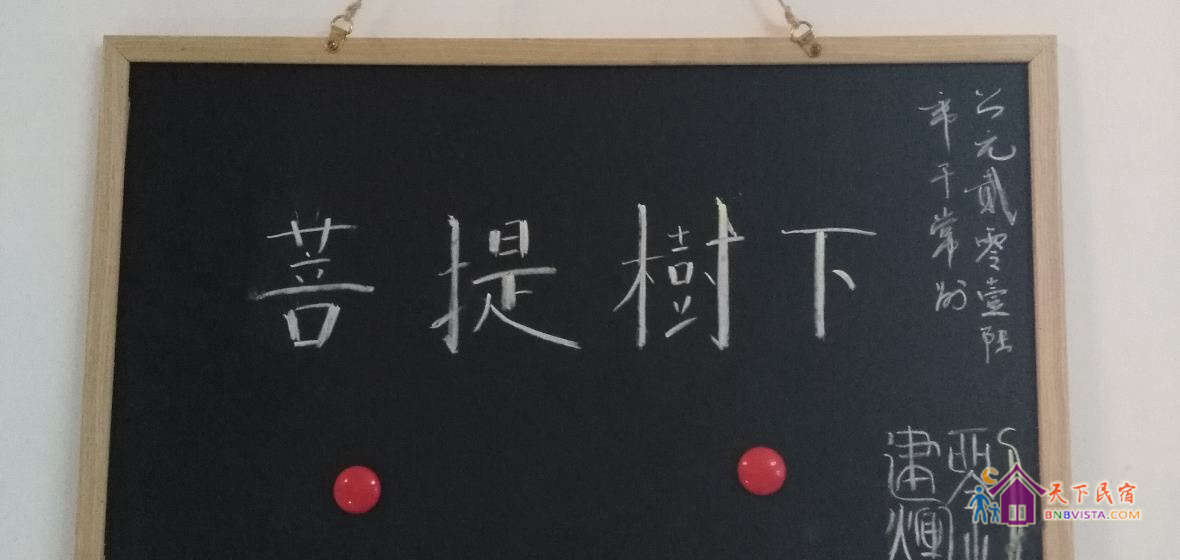 菩提樹下
公元貳零壹陸
年于常州
建
天下民宿
BNBVISTA.COM